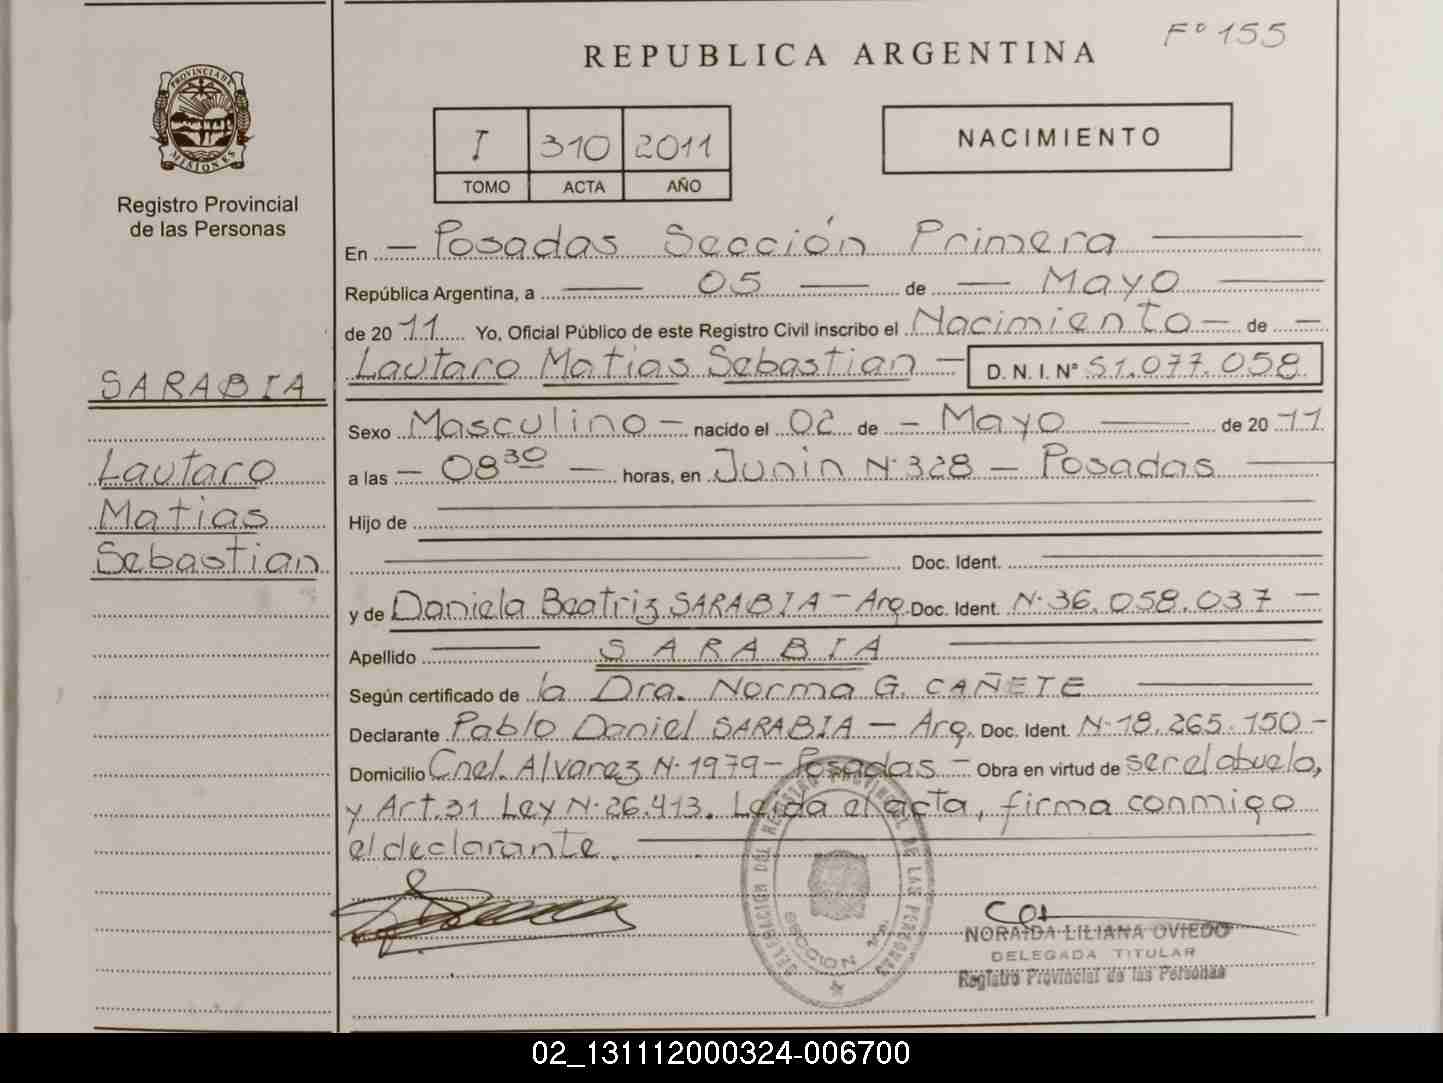 Fº 155
REPUBLICA ARGENTINA
PROVINCIA DE MISIONES
Registro Provincial
de las Personas
I 310 2011
TOMO ACTA AÑO
NACIMIENTO
SARABIA
Lautaro
Matias
Sebastian
En — Posadas Sección Primera
República Argentina, a 05 de — Mayo
de 2011 Yo, Oficial Público de este Registro Civil inscribo el Nacimiento — de —
Lautaro Matias Sebastian — D. N. I. Nº 51.077.058
Sexo Masculino — nacido el 02 de — Mayo de 2011
a las — 08 30 — horas, en Junin N· 328 — Posadas
Hijo de
Doc. Ident.
y de Daniela Beatriz SARABIA — Arg. Doc. Ident. N· 36.058.037 —
Apellido SARABIA
Según certificado de la Dra. Norma G. CAÑETE
Declarante Pablo Daniel SARABIA — Arg. Doc. Ident. N· 18.265.150 —
Domicilio Cnel. Alvarez N· 1979 — Posadas — Obra en virtud de ser el abuelo,
y Art. 31 Ley N· 26.413. Leida el acta, firma conmigo
el declarante.
DELEGACION DEL REGISTRO PROVINCIAL DE LAS PERSONAS
SECCION
NORAIDA LILIANA OVIEDO
DELEGADA TITULAR
Registro Provincial de las Personas
02_131112000324-006700